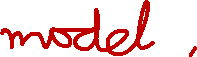 model ,